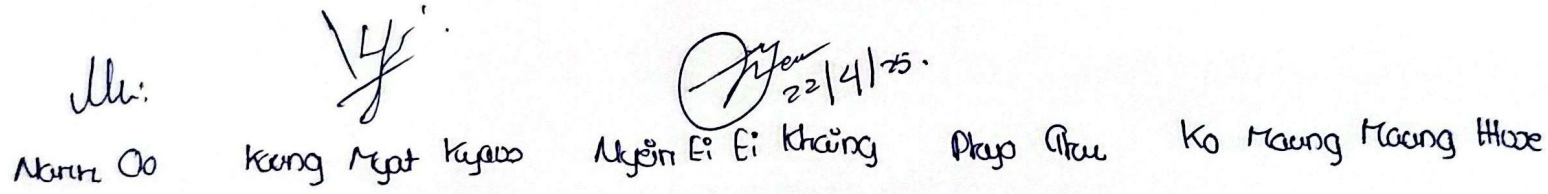 22/4/25.
Nann Oo Kaung Myat Kyaw Ei Ei Khaing Phyo Thu Ko Maung Maung Htwe